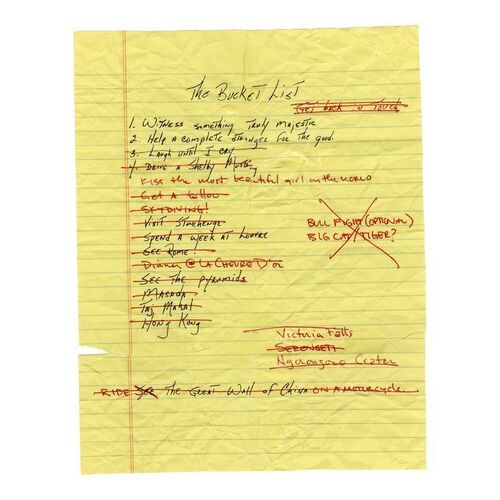 The Bucket List
Get back in Touch
1. Witness something Truly Majestic
2. Help a complete stranger for the good.
3. Laugh until I cry
4. Drive a Shelby Mustang
Kiss the most beautiful girl in the world
Get a tattoo
SKYDIVING!
Visit Stonehenge
BULL FIGHT (OPTIONAL)
Spend a week at Louvre
BIG CAT/TIGER?
SEE ROME!
Dinner @ LA CHEVRE D'OR
SEE THE PYRAMIDS
MASADA
Taj Mahal
Hong Kong
Victoria Falls
SERENGETI
Ngorongoro Crater
RIDE SEE THE GREAT WALL OF CHINA ON A MOTORCYCLE